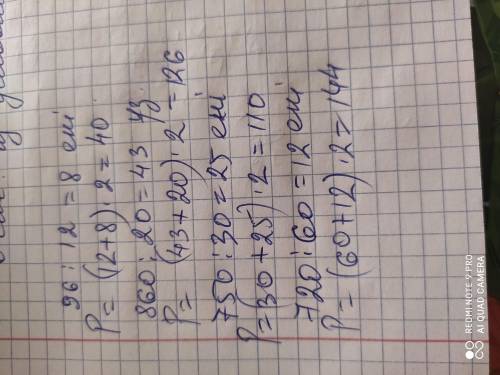 96 : 12 = 8 ені
P = (12+8) · 2 = 40
860 : 20 = 43 ұз
P = (43+20) · 2 = 126
750 : 30 = 25 ені
P = (30 + 25) · 2 = 110
720 : 60 = 12 ені
P = (60+12) · 2 = 144
REDMI NOTE 9 PRO
AI QUAD CAMERA